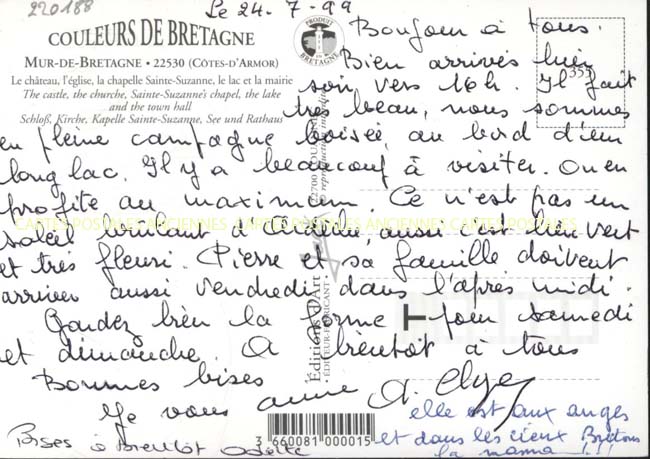 220188
Le 24-7-99
COULEURS DE BRETAGNE
MUR-DE-BRETAGNE • 22530 (CÔTES-D'ARMOR)
Le château, l'église, la chapelle Sainte-Suzanne, le lac et la mairie
The castle, the churche, Sainte-Suzanne's chapel, the lake
and the town hall
Schloß, Kirche, Kapelle Sainte-Suzanne, See und Rathaus
PRODUIT
EN BRETAGNE
353
Bonjour à tous.
Bien arrivés hier
soir vers 16h. Il fait
très beau, nous sommes
en pleine campagne boisée, au bord d'un
long lac. Il y a beaucoup à visiter. On en
profite au maximum. Ce n'est pas un
soleil brûlant à aussi c'est bien vert
et très fleuri. Pierre et sa famille doivent
arriver aussi vendredi dans l'après midi.
Gardez bien la forme pour samedi
et dimanche. A bientôt à tous
Bonnes bises
Je vous aime
Bises à Bientôt Odette
elle est aux anges
et dans les cieux Bretons
la mama !!!
Editions D'Art
EDITEUR-FABRICANT
CARTES POSTALES ANCIENNES CARTES POSTALES ANCIENNES CARTES POSTALES ANCIENNES
3 660081 000015